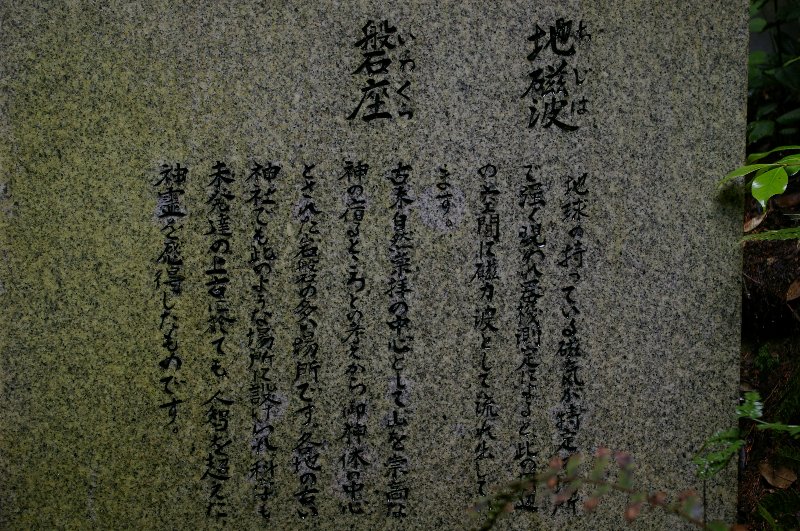 地磁波
ちじは
地球の持っている磁気が特定の場所
で強く現われ落後側定によると此の周辺
の空間は磁力波として流れ出して
ます。
磐石座
いわくら
古来自然崇拝の中心として山を崇高な
神の宿るところとの考えから御神体の中心
とされた岩磐の多い場所です各地の古い
神社でも此のような場所に設けられ科学も
未発達の上古に於ても人智を超えた
神霊を感得したものです